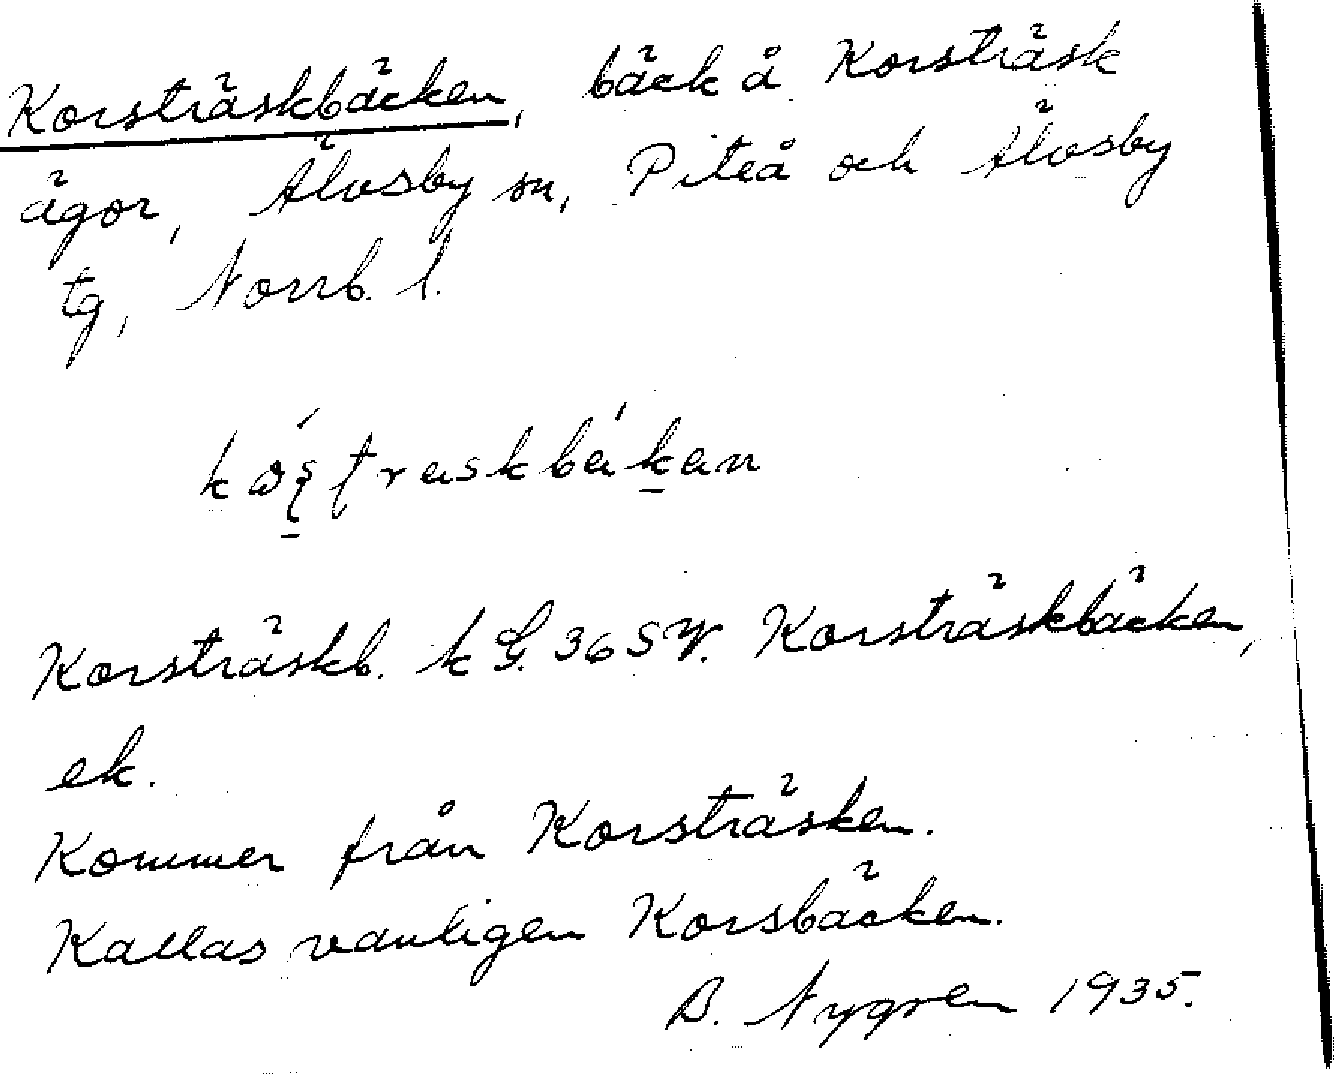 Korsträskbäcken, bäck å Korsträsk
ägor, Älvsby sn, Piteå och Älvsby
tg, Norrb. l.
Korsträskb. kG. 36 SV. Korsträskbäcken,
ek.
Kommer från Korsträsken.
Kallas vanligen Korsbäcken.
B. Nygren 1935.